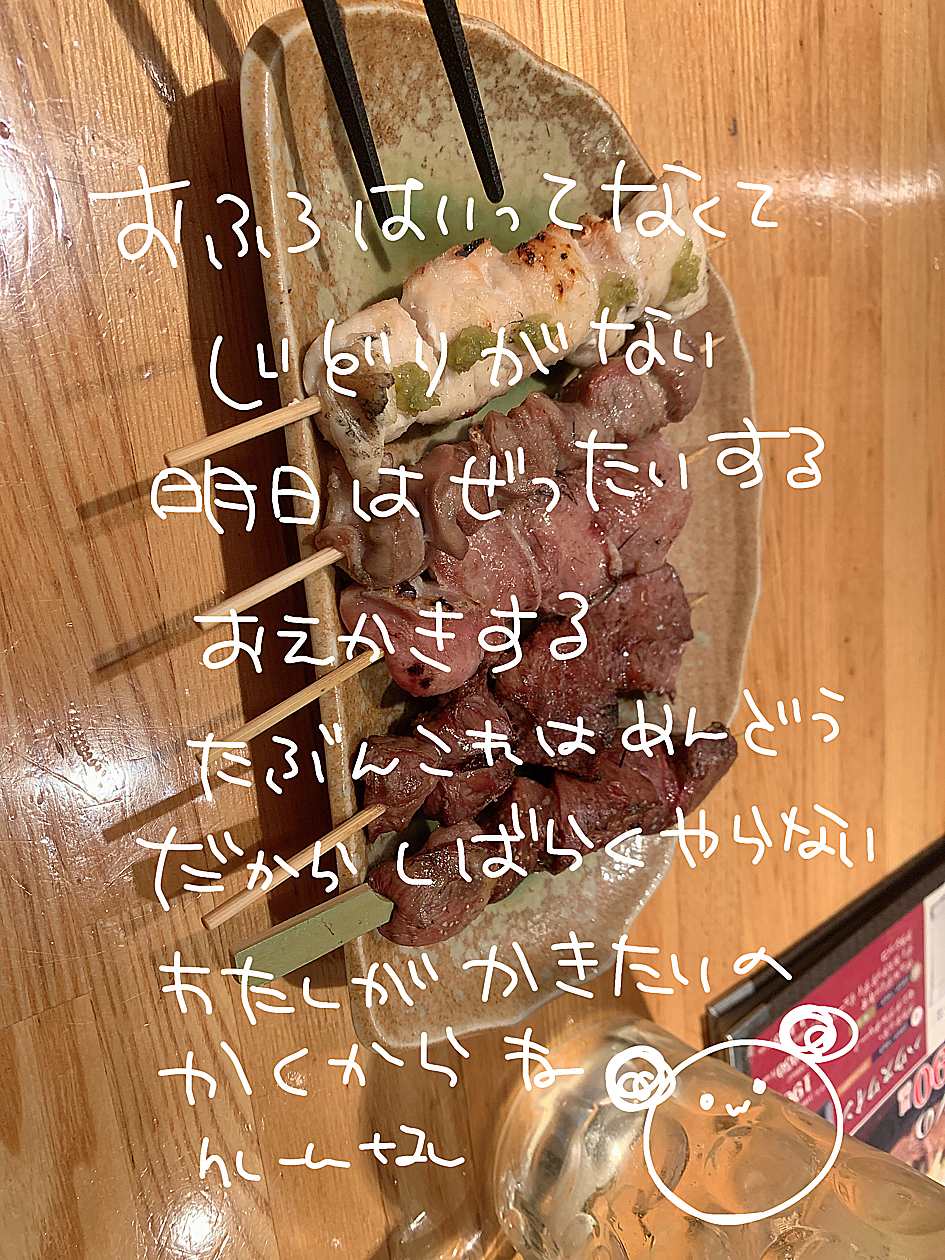 おふろはいってなくて
じどりがない
明日はぜったいする
おえかきする
たぶんこれはめんどう
だからしばらくやらない
わたしがかきたいの
かくからね